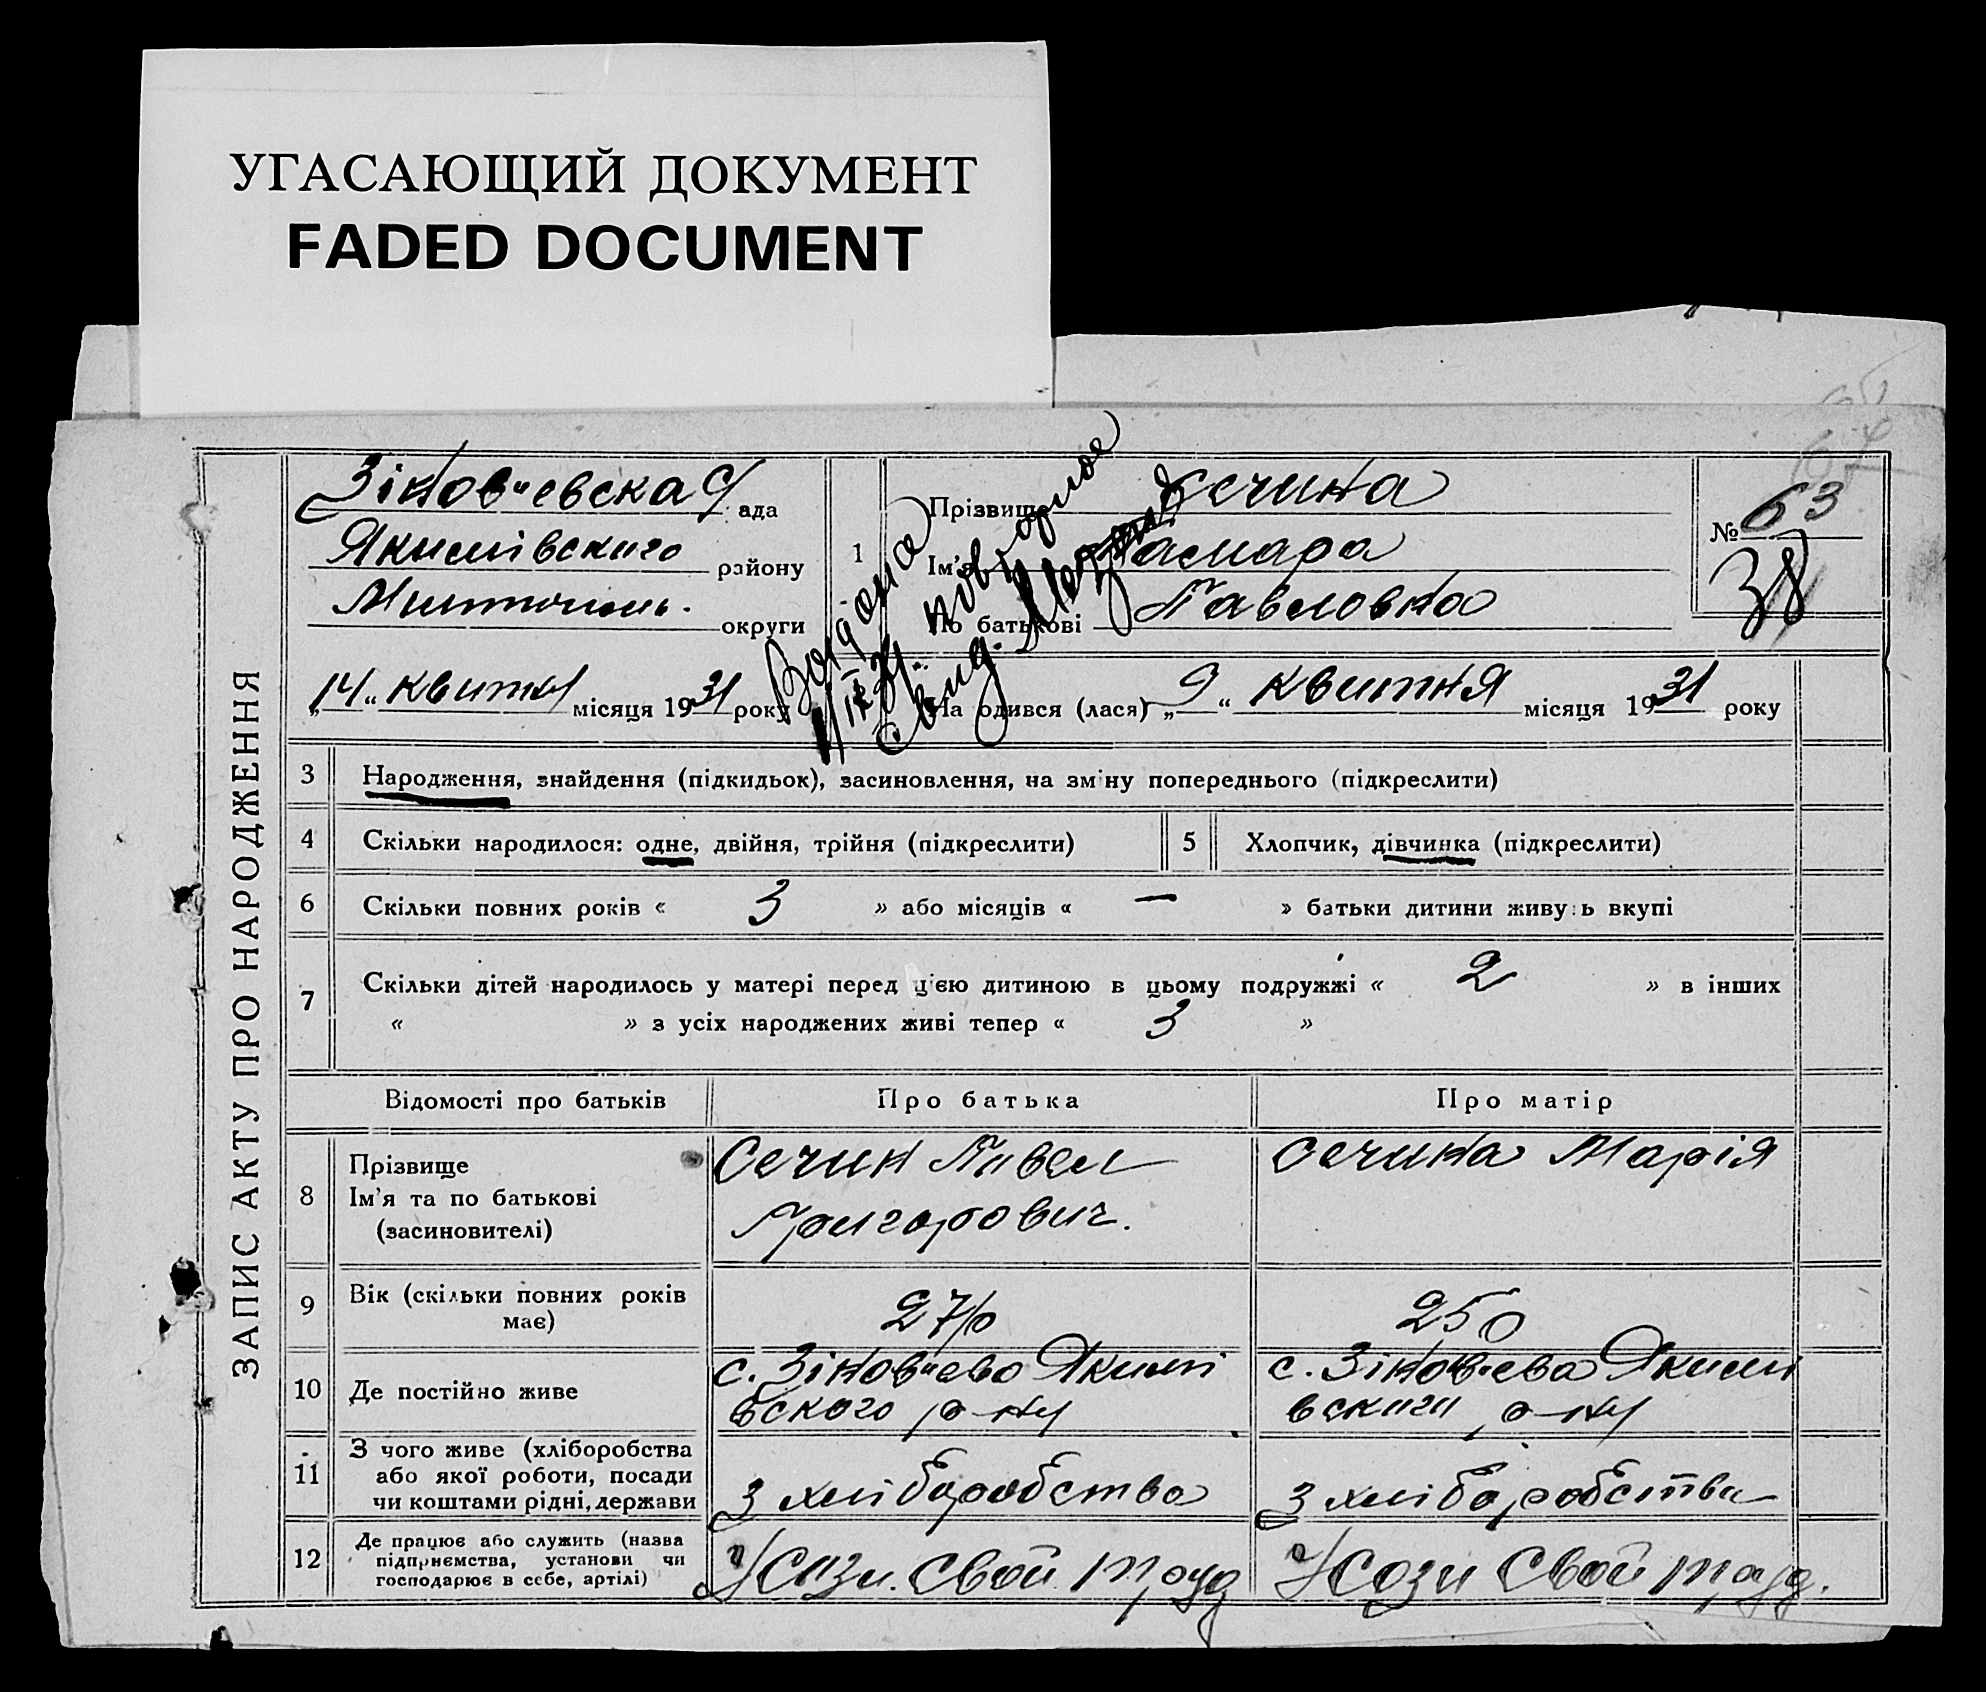 УГАСАЮЩИЙ ДОКУМЕНТ
FADED DOCUMENT
ЗАПИС АКТУ ПРО НАРОДЖЕННЯ
Зіновʼєвска С/ ада
Якимівского району
округи
1
Прізвище Сечина
Ім'я Тамара
По батькові Павловна
№ 63
38
Видано повторное
Свид.
„14“ квитня місяця 1931 року
На одився (лася) „9“ квитня місяця 1931 року
3 Народження, знайдення (підкидьок), засиновлення, на зміну попереднього (підкреслити)
4 Скільки народилося: одне, двійня, трійня (підкреслити) 5 Хлопчик, дівчинка (підкреслити)
6 Скільки повних років « 3 » або місяців « — » батьки дитини живуть вкупі
7 Скільки дітей народилось у матері перед цією дитиною в цьому подружжі « 2 » в інших
« » з усіх народжених живі тепер « 3 »
Відомості про батьків Про батька Про матір
8 Прізвище
Ім'я та по батькові
(засиновителі)
Сечин Павел
Григорович.
Сечина Марія
9 Вік (скільки повних років
має)
27 р
25 р
10 Де постійно живе
с. Зіновʼєво Якимі
вского р-ну
с. Зіновʼєва Якими
вского р-ну
11 З чого живе (хліборобства
або якої роботи, посади
чи коштами рідні, держави
З хліборобства
З хліборобства
12 Де працює або служить (назва
підприємства, установи чи
господарює в себе, артілі)
У Созі. Свой труд
У Созі Свой труд.